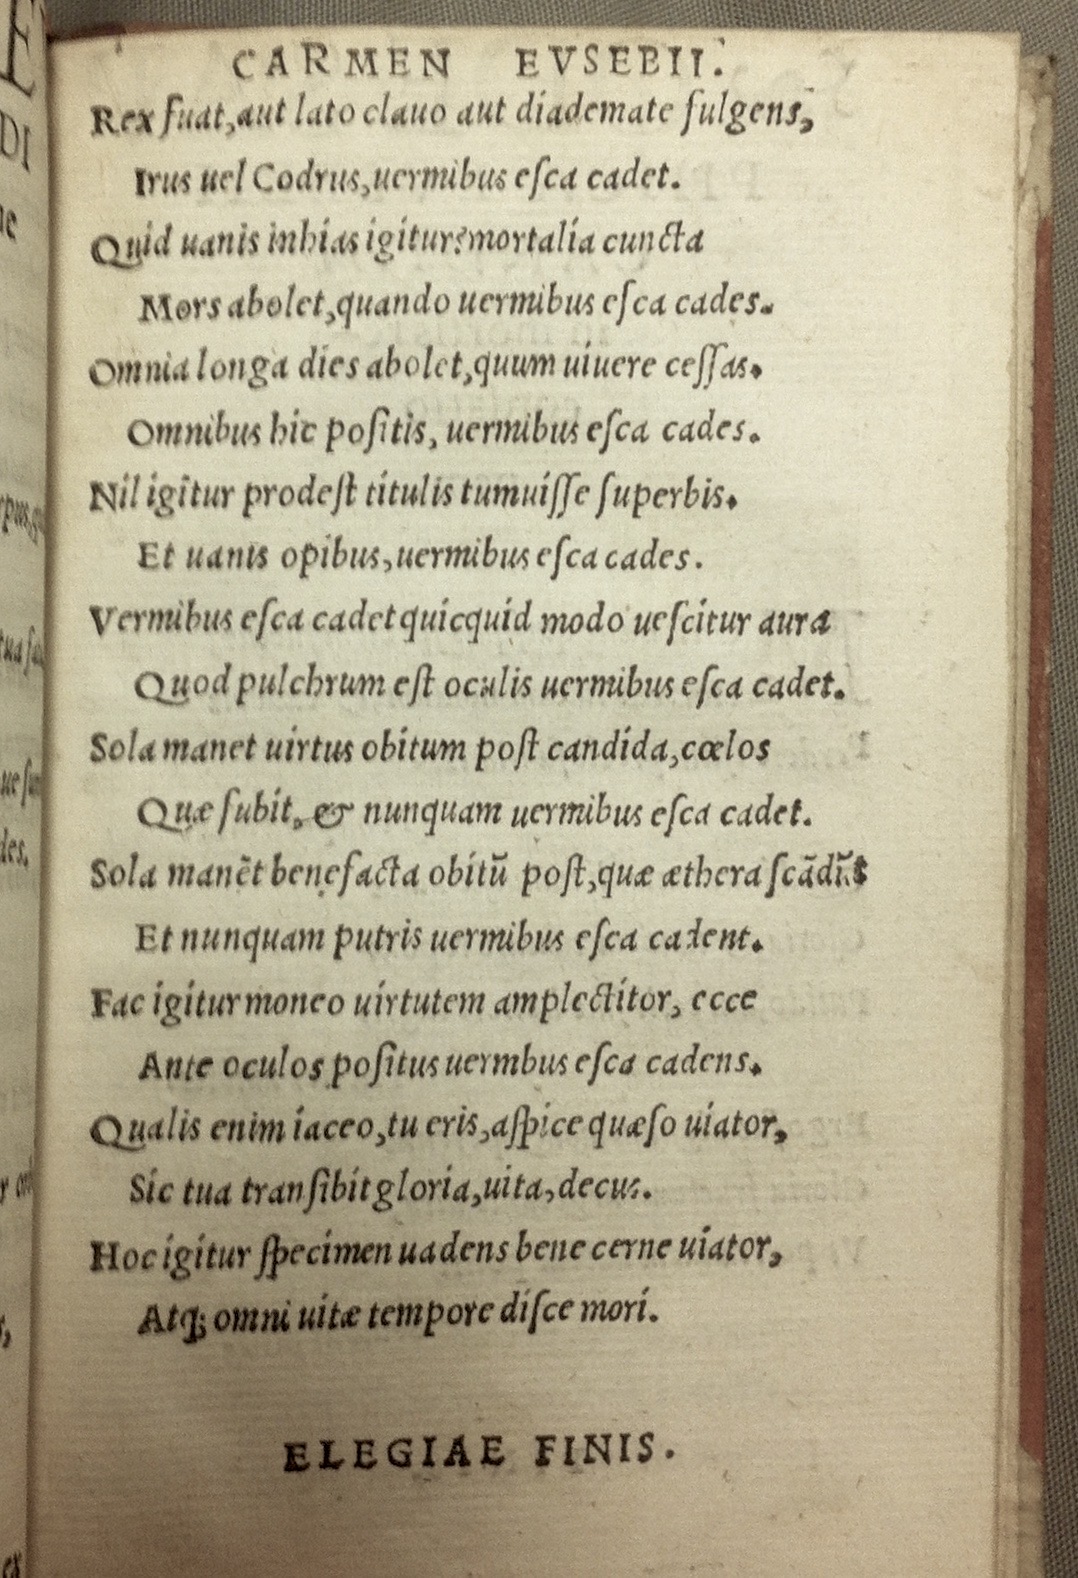 CARMEN EVSEBII.
Rex fuat, aut lato clauo aut diademate fulgens,
Irus uel Codrus, uermibus esca cadet.
Quid uanis inhias igitur? mortalia cuncta
Mors abolet, quando uermibus esca cades.
Omnia longa dies abolet, quum uiuere cessas.
Omnibus hic positis, uermibus esca cades.
Nil igitur prodest titulis tumuisse superbis.
Et uanis opibus, uermibus esca cades.
Vermibus esca cadet quicquid modo uescitur aura
Quod pulchrum est oculis uermibus esca cadet.
Sola manet uirtus obitum post candida, cœlos
Quæ subit, & nunquam uermibus esca cadet.
Sola manẽt benefacta obitũ post, quæ æthera scãdũt
Et nunquam putris uermibus esca cadent.
Fac igitur moneo uirtutem amplectitor, ecce
Ante oculos positus uermbus esca cadens.
Qualis enim iaceo, tu eris, aspice quæso uiator,
Sic tua transibit gloria, uita, decus.
Hoc igitur specimen uadens bene cerne uiator,
Atq; omni uitæ tempore disce mori.
ELEGIAE FINIS.